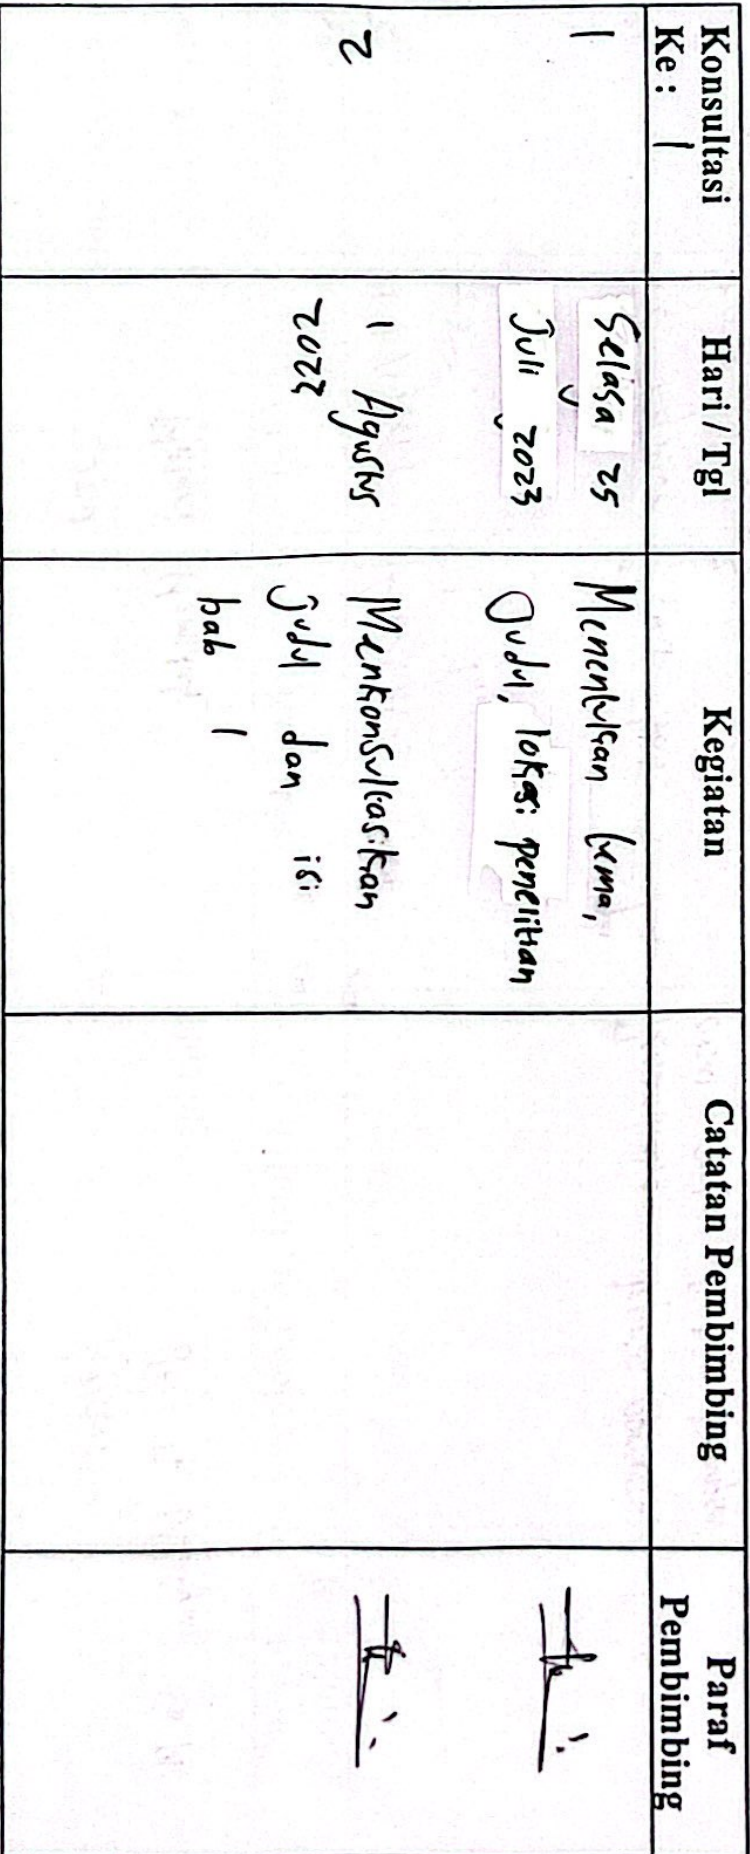 Konsultasi
Ke : 1
Hari / Tgl
Kegiatan
Catatan Pembimbing
Paraf
Pembimbing
1
Selasa 25
Juli 2023
Menentukan tema,
Judul, lokasi penelitian
2
1 Agustus
2023
Menkonsultasikan
judul dan isi
bab 1